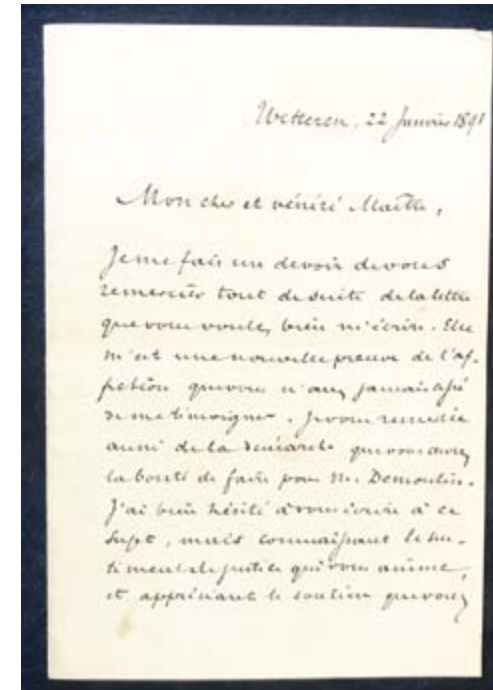 Wetteren, 22 Janvier 1891
Mon cher et vénéré Maître,
Je me fais un devoir de vous
remercier tout de suite de la lettre
que vous voulez bien m'écrire. Elle
m'est une nouvelle preuve de l'af-
fection que vous n'avez jamais cessé
de me témoigner. Je vous remercie
aussi de la démarche que vous avez
la bonté de faire pour M. Demoulin.
J'ai bien hésité à vous écrire à ce
sujet, mais connaissant le sen-
timent de justice qui vous anime,
et appréciant le soutien que vous